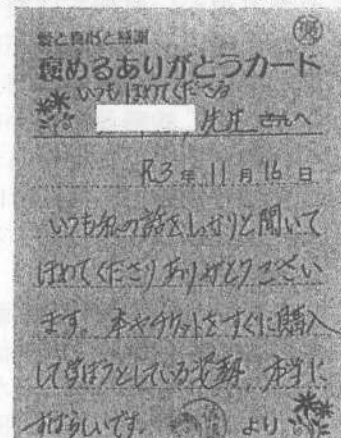 愛と真心と感謝
褒めるありがとうカード
いつもほめてくださる
先生さんへ
R3年11月16日
いつも私の話をしっかりと聞いて
ほめてくださりありがとうござい
ます。本やチケットをすぐに購入
して学ぼうとしている姿勢、本当に
すばらしいです。 より